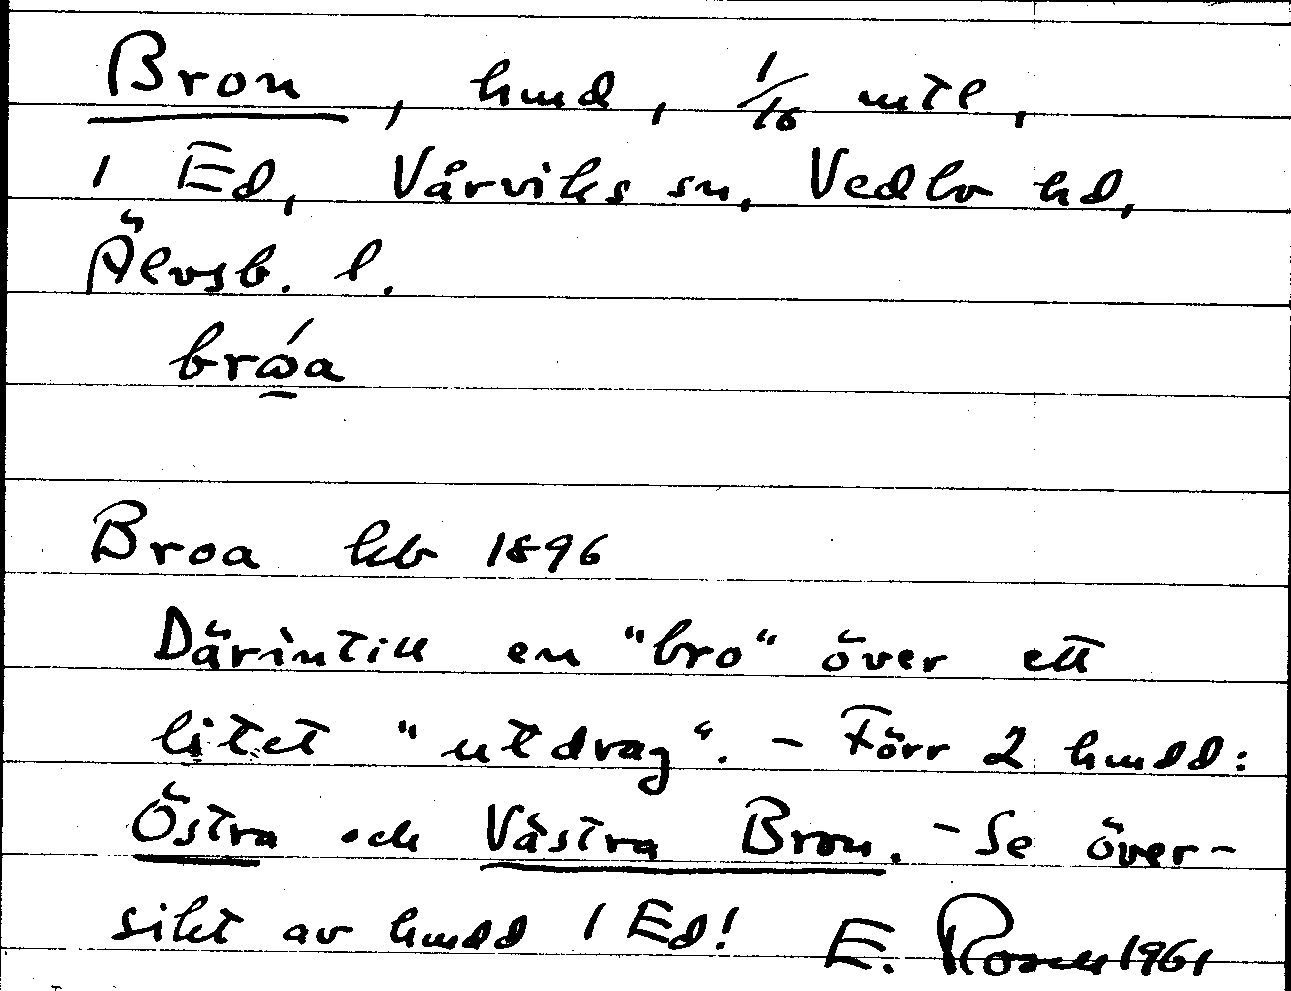 Bron, hmd, 1/16 mtl,
1 Ed, Vårviks sn, Vedbo hd,
Älvsb. l.
brώ̱a
Broa kb 1896
Därintill en "bro" över ett
litet "utdrag". - Förr 2 hmdd:
Östra och Västra Bron. - Se över-
sikt av hmdd 1 Ed! E. Rosell 1961